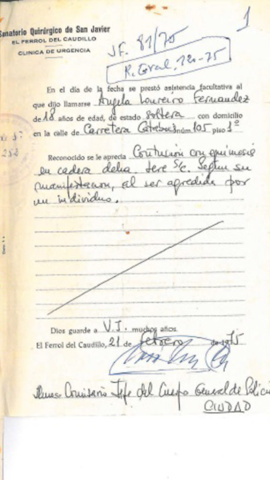 1
Sanatorio Quirúrgico de San Javier
EL FERROL DEL CAUDILLO
CLINICA DE URGENCIA
J.F. 81/75
R. Gral. 120-75
En el día de la fecha se prestó asistencia facultativa al
que dijo llamarse Angela Loureiro Fernandez
de 18 años de edad, de estado soltera con domicilio
en la calle de Carretera núm 105 piso 1º
Reconocido se le aprecia Contusion con equimosis
en cadera dcha. Segun su
manifestacion, al ser agredida por
un individuo.
Dios guarde a V.I. muchos años.
El Ferrol del Caudillo, 21 de febrero de 1975
Ilmo. Comisario Jefe del Cuerpo General de Policia
CIUDAD